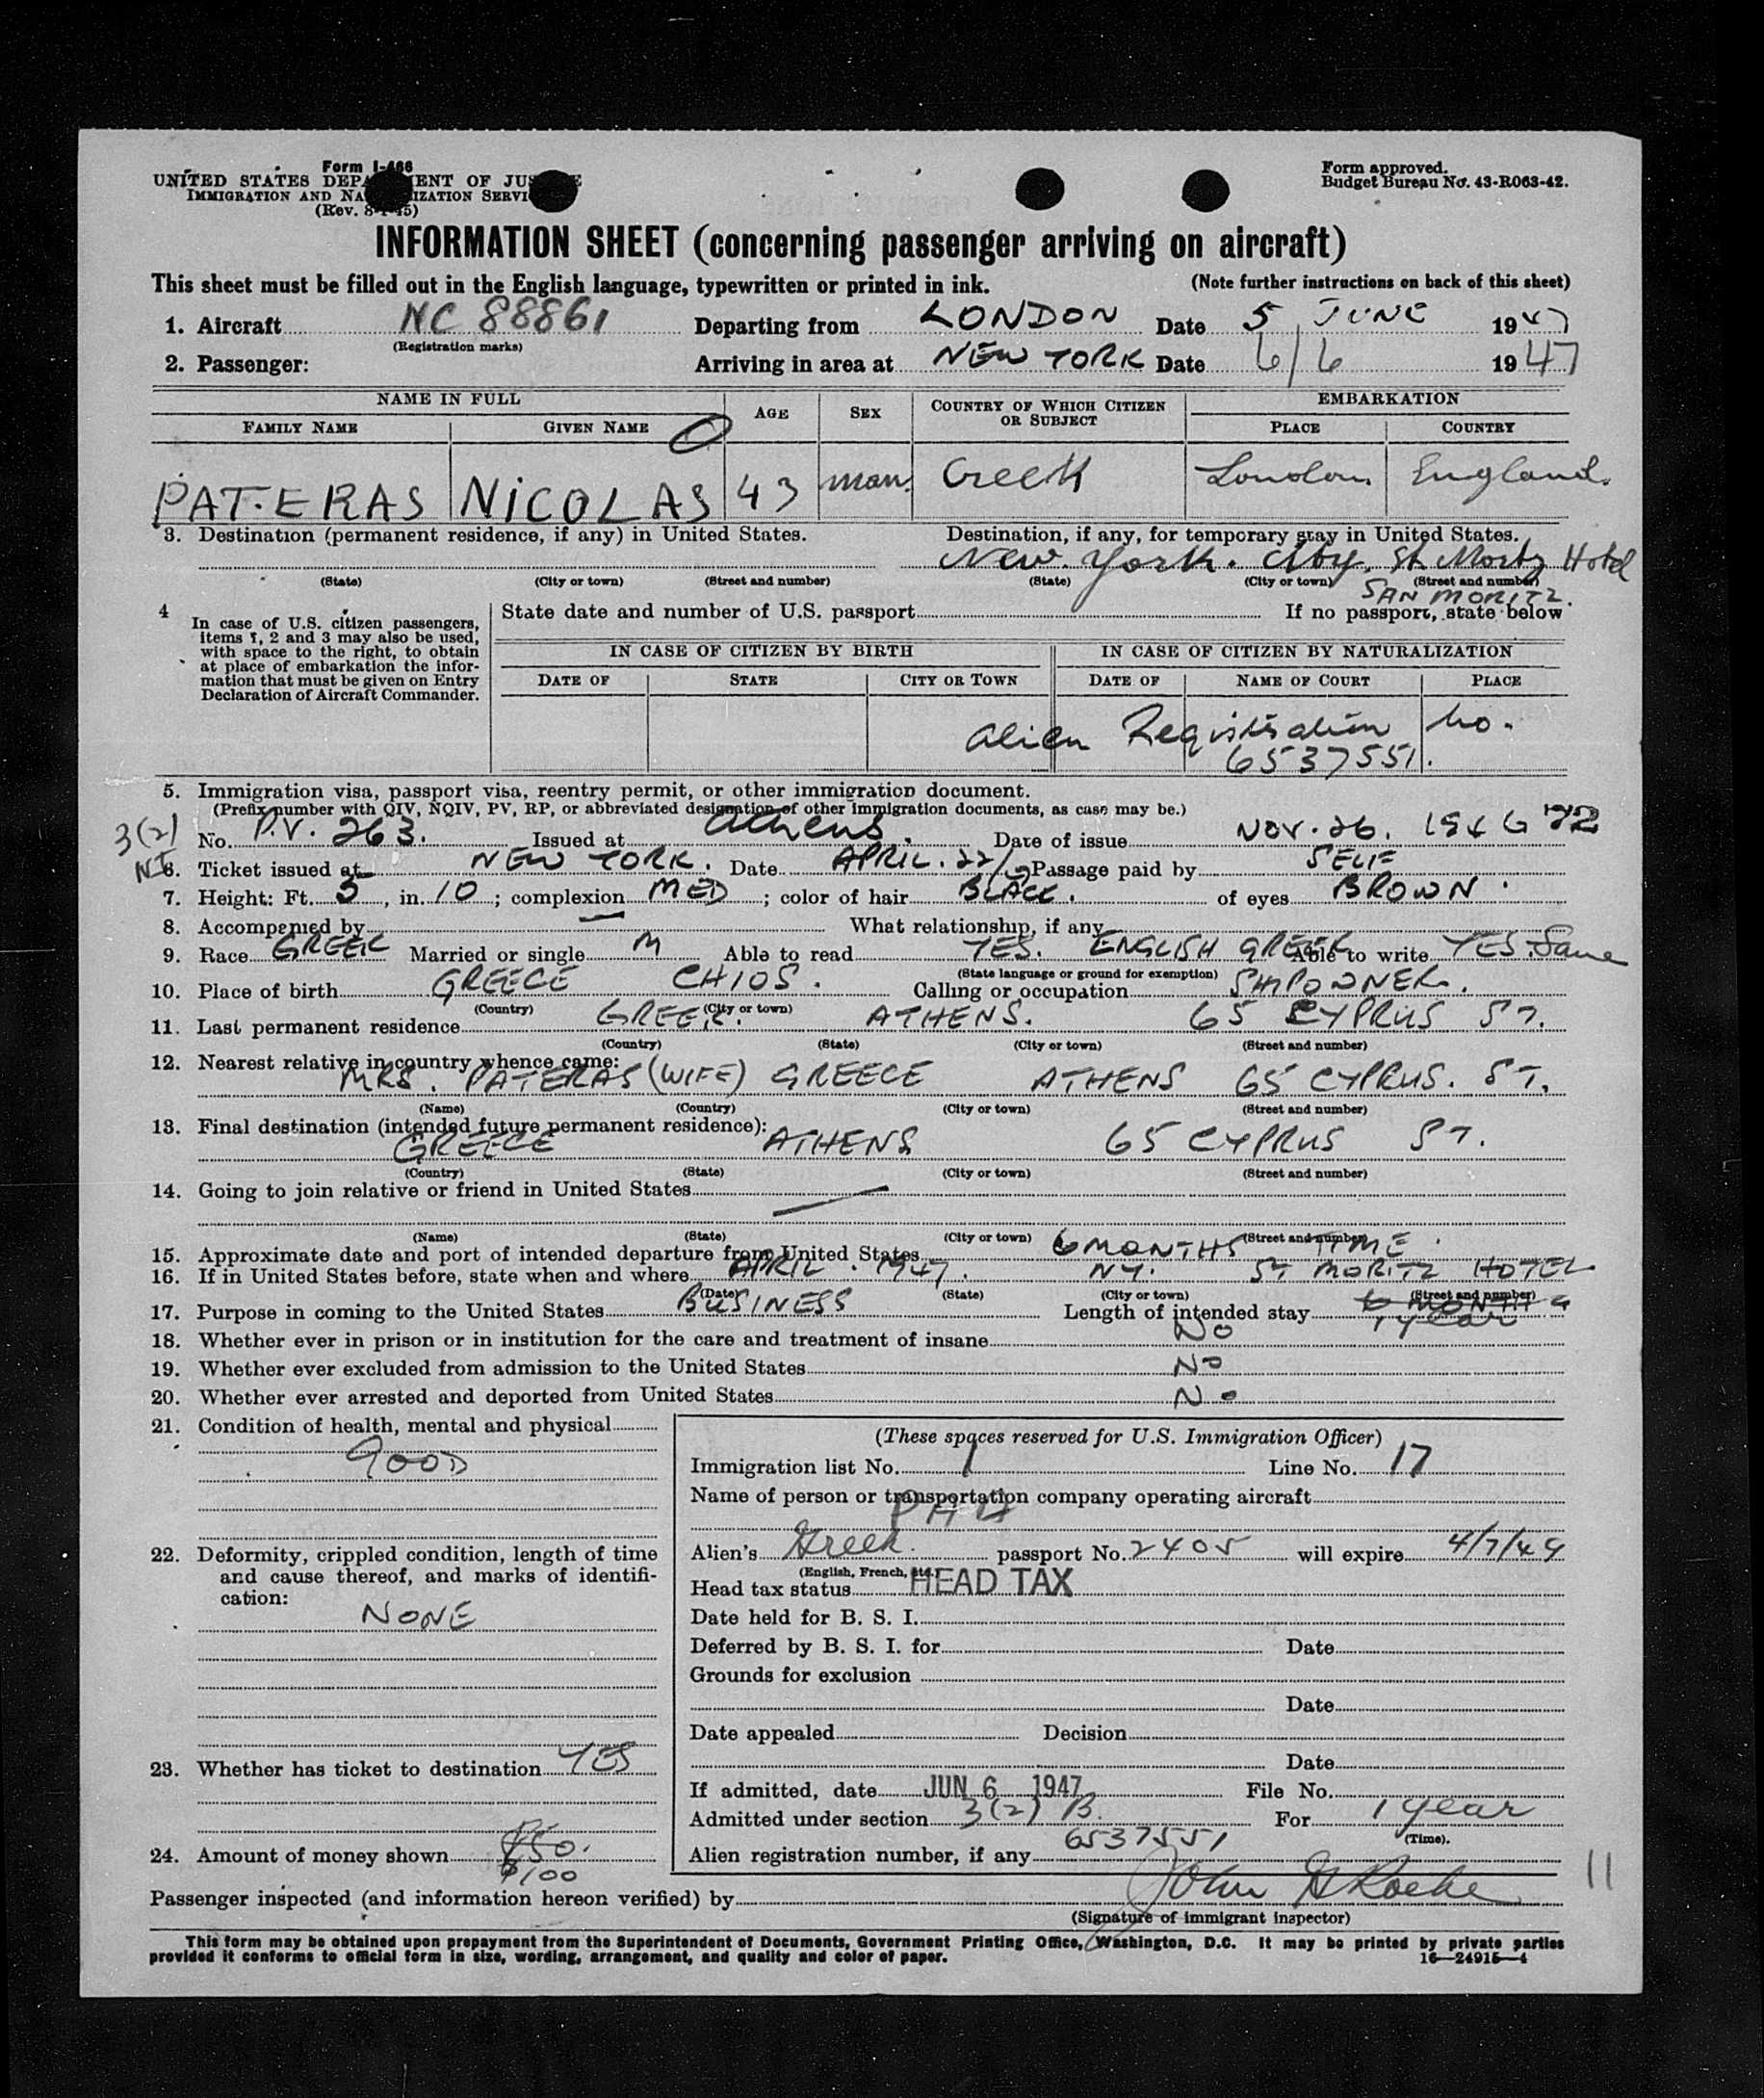 Form I-466
UNITED STATES DEPARTMENT OF JUSTICE
IMMIGRATION AND NATURALIZATION SERVICE
(Rev. 8-1-45)
Form approved.
Budget Bureau No. 43-R063-42.
INFORMATION SHEET (concerning passenger arriving on aircraft)
This sheet must be filled out in the English language, typewritten or printed in ink. (Note further instructions on back of this sheet)
1. Aircraft NC 88861 Departing from LONDON Date 5 JUNE 1947
(Registration marks)
2. Passenger: Arriving in area at NEW YORK Date 6/6 1947
NAME IN FULL AGE SEX COUNTRY OF WHICH CITIZEN OR SUBJECT EMBARKATION
FAMILY NAME GIVEN NAME PLACE COUNTRY
PATERAS NICOLAS 43 man Greek London England.
3. Destination (permanent residence, if any) in United States. Destination, if any, for temporary stay in United States.
New York. City. St Moritz Hotel
(State) (City or town) (Street and number) (State) (City or town) (Street and number)
SAN MORITZ.
4 In case of U.S. citizen passengers, items 1, 2 and 3 may also be used, with space to the right, to obtain at place of embarkation the information that must be given on Entry Declaration of Aircraft Commander.
State date and number of U.S. passport If no passport, state below
IN CASE OF CITIZEN BY BIRTH IN CASE OF CITIZEN BY NATURALIZATION
DATE OF STATE CITY OR TOWN DATE OF NAME OF COURT PLACE
Alien Registration No.
6537551.
5. Immigration visa, passport visa, reentry permit, or other immigration document.
(Prefix number with QIV, NQIV, PV, RP, or abbreviated designation of other immigration documents, as case may be.)
3(2)
No. P.V. 263. Issued at Athens. Date of issue Nov. 26. 1946
6. Ticket issued at NEW YORK. Date APRIL. 22/47 Passage paid by SELF
7. Height: Ft. 5, in. 10; complexion MED; color of hair BLACK. of eyes BROWN.
8. Accompanied by — What relationship, if any
9. Race GREEK Married or single M Able to read YES. ENGLISH GREEK Able to write YES. Same
(State language or ground for exemption)
10. Place of birth GREECE CHIOS. Calling or occupation SHIPOWNER.
(Country) (City or town)
11. Last permanent residence GREEK. ATHENS. 65 CYPRUS ST.
(Country) (State) (City or town) (Street and number)
12. Nearest relative in country whence came:
MRS. PATERAS (WIFE) GREECE ATHENS 65 CYPRUS. ST.
(Name) (Country) (City or town) (Street and number)
13. Final destination (intended future permanent residence):
GREECE ATHENS 65 CYPRUS ST.
(Country) (State) (City or town) (Street and number)
14. Going to join relative or friend in United States —
(Name) (State) (City or town) (Street and number)
15. Approximate date and port of intended departure from United States 6 MONTHS TIME.
16. If in United States before, state when and where APRIL. 1947. NY. ST MORITZ HOTEL
(Date) (State) (City or town) (Street and number)
17. Purpose in coming to the United States BUSINESS Length of intended stay 6 MONTHS 1 year
18. Whether ever in prison or in institution for the care and treatment of insane NO
19. Whether ever excluded from admission to the United States NO
20. Whether ever arrested and deported from United States NO
21. Condition of health, mental and physical
GOOD
22. Deformity, crippled condition, length of time and cause thereof, and marks of identification:
NONE
23. Whether has ticket to destination YES
24. Amount of money shown $50.
$100
(These spaces reserved for U.S. Immigration Officer)
Immigration list No. 1 Line No. 17
Name of person or transportation company operating aircraft
PAA
Alien's Greek passport No. 2405 will expire 4/7/49
(English, French, etc.)
Head tax status HEAD TAX
Date held for B. S. I.
Deferred by B. S. I. for Date
Grounds for exclusion
Date
Date appealed Decision
Date
If admitted, date JUN 6 1947 File No.
Admitted under section 3(2) B. For 1 year
(Time).
Alien registration number, if any 6537551
11
Passenger inspected (and information hereon verified) by John
(Signature of immigrant inspector)
This form may be obtained upon prepayment from the Superintendent of Documents, Government Printing Office, Washington, D.C. It may be printed by private parties
provided it conforms to official form in size, wording, arrangement, and quality and color of paper. 16—24915-4